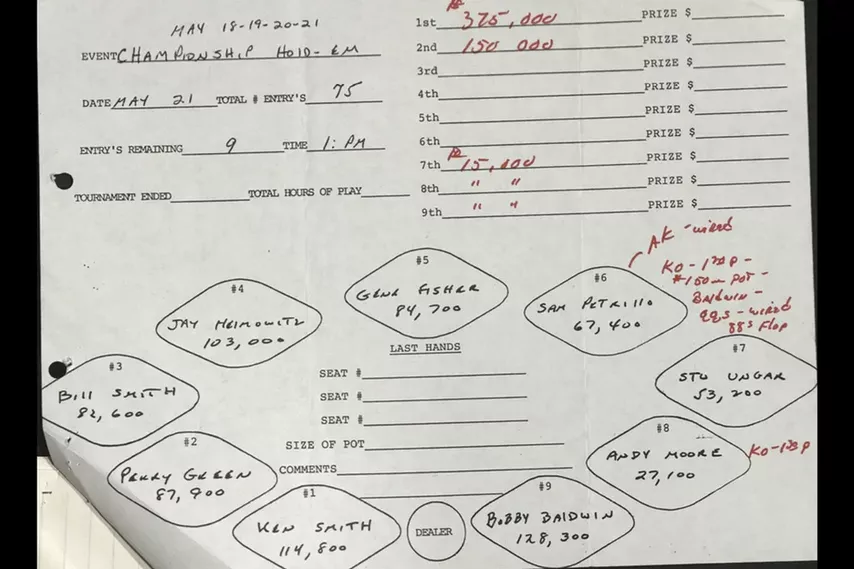 MAY 18-19-20-21
EVENT CHAMPIONSHIP HOLD-EM
DATE MAY 21 TOTAL # ENTRY'S 75
ENTRY'S REMAINING 9 TIME 1:PM
TOURNAMENT ENDED TOTAL HOURS OF PLAY
1st $ 375,000 PRIZE $
2nd 150 000 PRIZE $
3rd PRIZE $
4th PRIZE $
5th PRIZE $
6th PRIZE $
7th $ 15,000 PRIZE $
8th " " PRIZE $
9th " " PRIZE $
AK - wired
KO-
$150m POT -
BALDWIN -
QQS - wired
88s Flop
#5
GENE FISHER
84,700
#4
JAY HEIMOWITZ
103,000
#6
SAM PETRILLO
67,400
#3
BILL SMITH
82,600
#7
STU UNGAR
53,200
#2
PERRY GREEN
87,900
#8
ANDY MOORE
27,100
KO-
#1
KEN SMITH
114,800
#9
BOBBY BALDWIN
128,300
DEALER
LAST HANDS
SEAT #
SEAT #
SEAT #
SIZE OF POT
COMMENTS